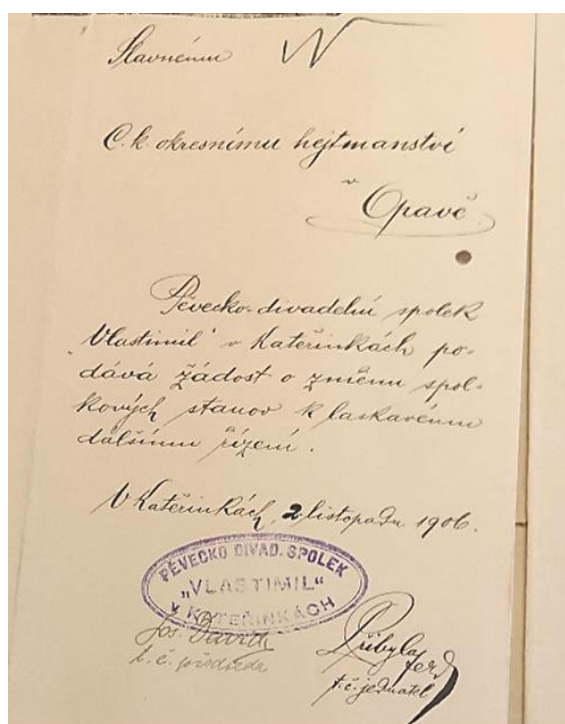 Slavnému
C. k. okresnímu hejtmanství
v
Opavě
Pěvecko-divadelní spolek
"Vlastimil" v Kateřinkách po-
dává žádost o změnu spol-
kových stanov k laskavému
dalšímu řízení.
V Kateřinkách, 2 listopadu 1906.
PĚVECKO DIVAD. SPOLEK
„VLASTIMIL“
V KATEŘINKÁCH
Jos. David
t. č. předseda
Přibyla Ferd
t. č. jednatel